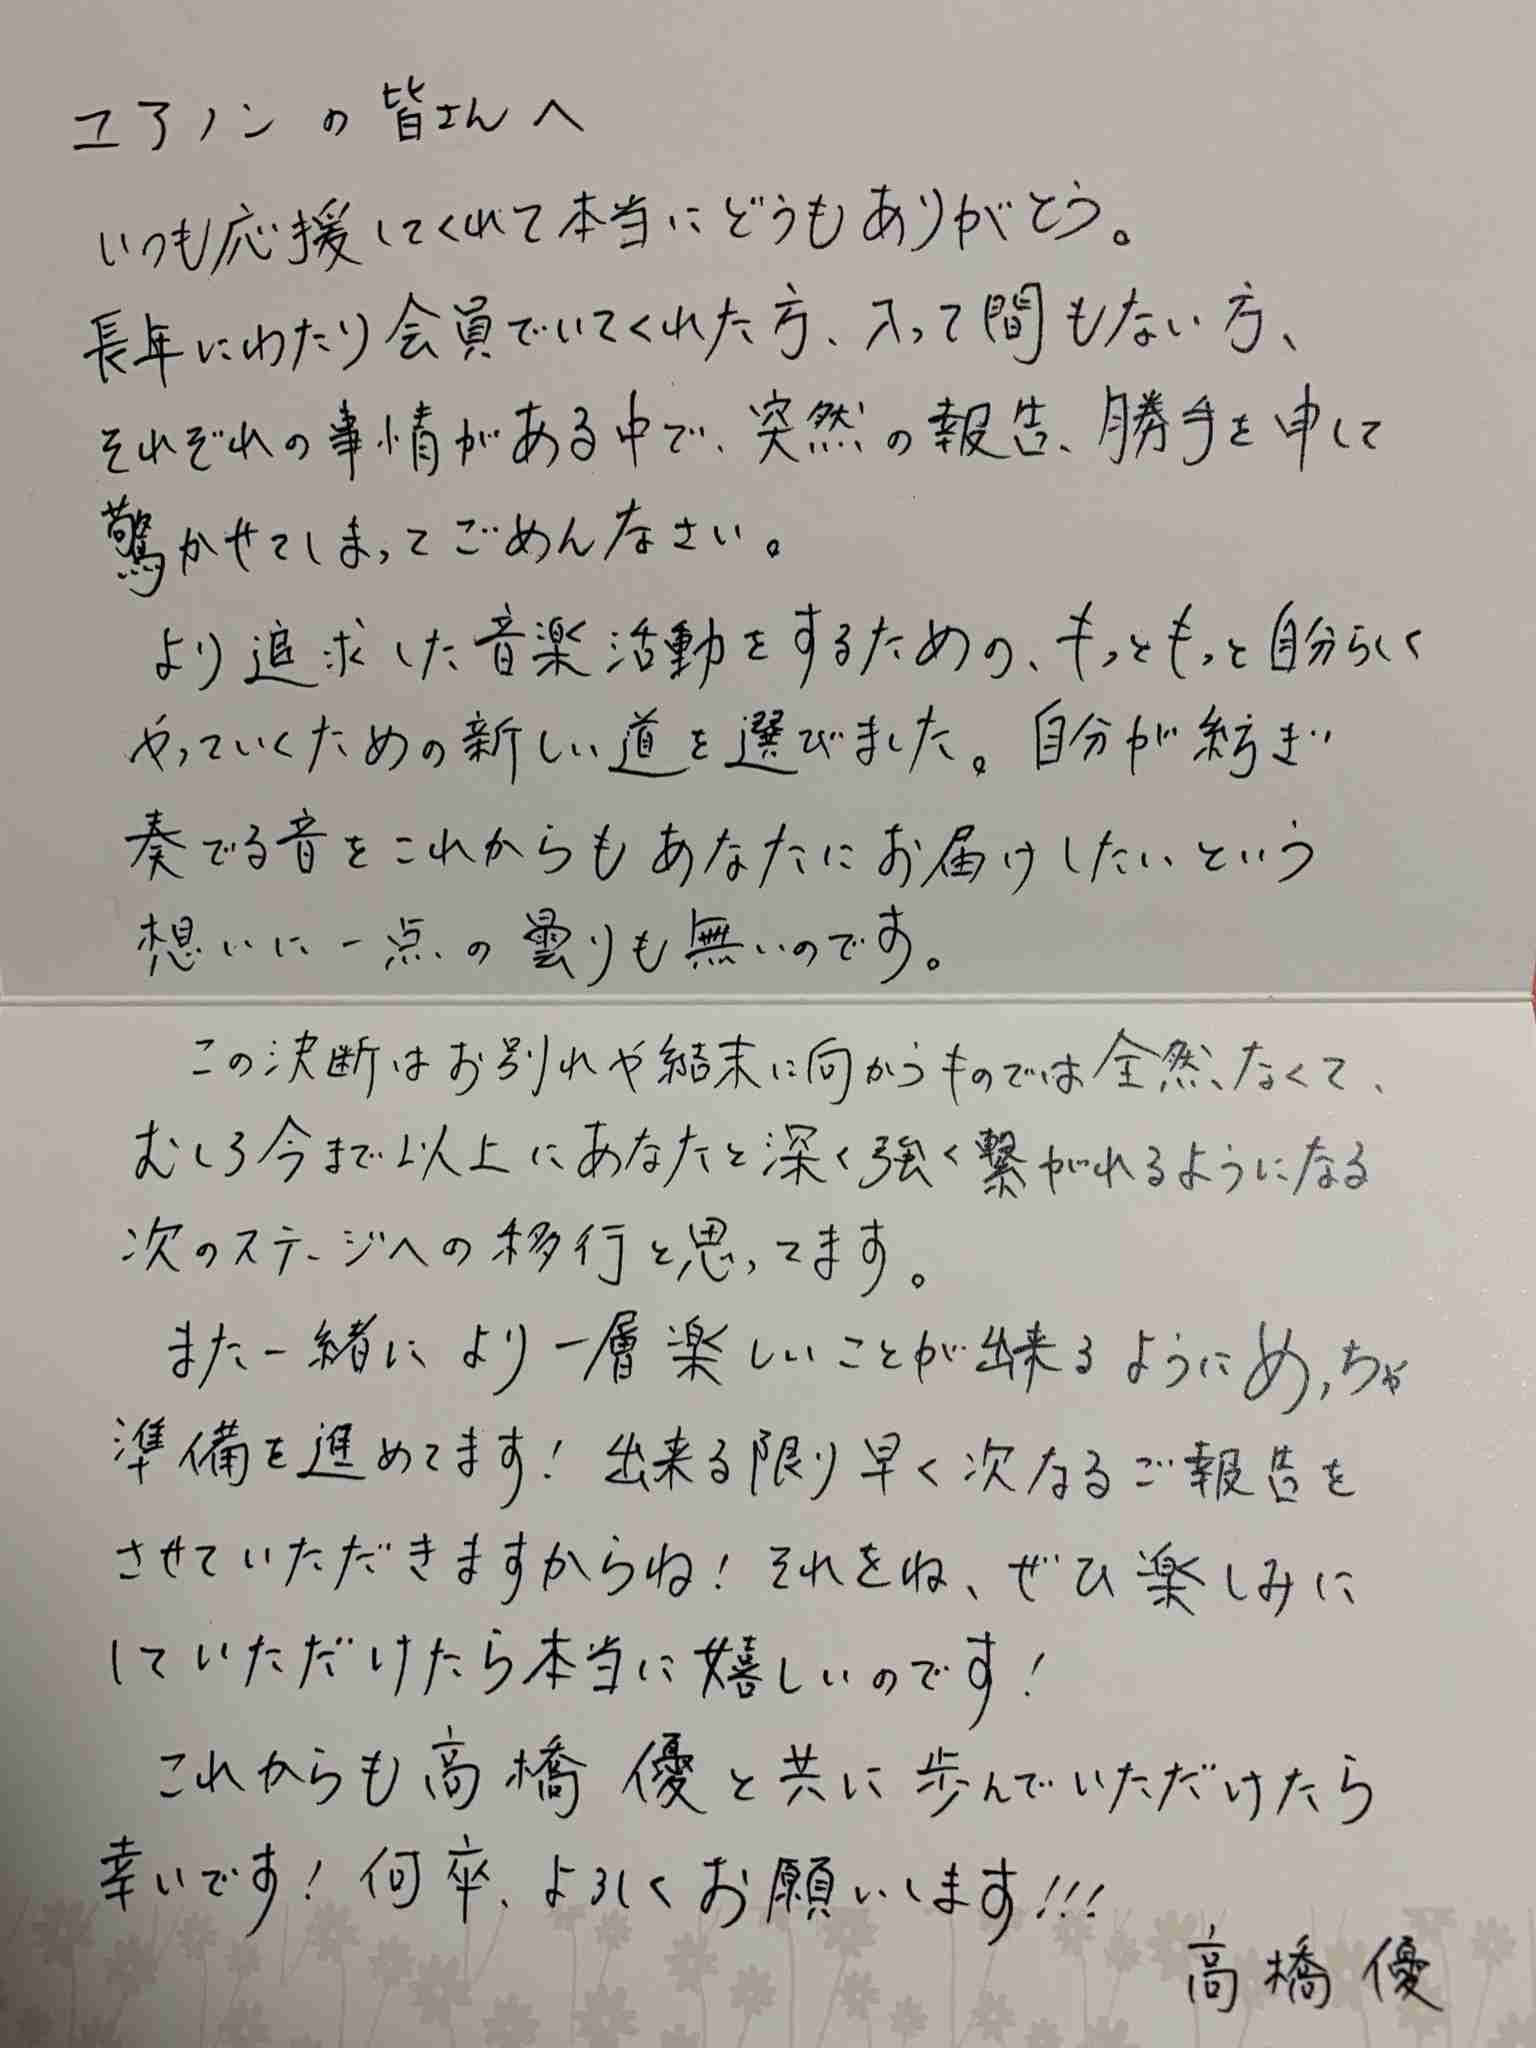 ユアノンの皆さんへ
いつも応援してくれて本当にどうもありがとう。
長年にわたり会員でいてくれた方、入って間もない方、
それぞれの事情がある中で、突然の報告、勝手を申して
驚かせてしまってごめんなさい。
より追求した音楽活動をするための、もっともっと自分らしく
やっていくための新しい道を選びました。自分が紡ぎ
奏でる音をこれからもあなたにお届けしたいという
想いに一点の曇りも無いのです。
この決断はお別れや結末に向かうものでは全然なくて、
むしろ今まで以上にあなたと深く強く繋がれるようになる
次のステージへの移行と思ってます。
また一緒により一層楽しいことが出来るようにめっちゃ
準備を進めてます！出来る限り早く次なるご報告を
させていただきますからね！それをね、ぜひ楽しみに
していただけたら本当に嬉しいのです！
これからも高橋優と共に歩んでいただけたら
幸いです！何卒、よろしくお願いします!!!
高橋優